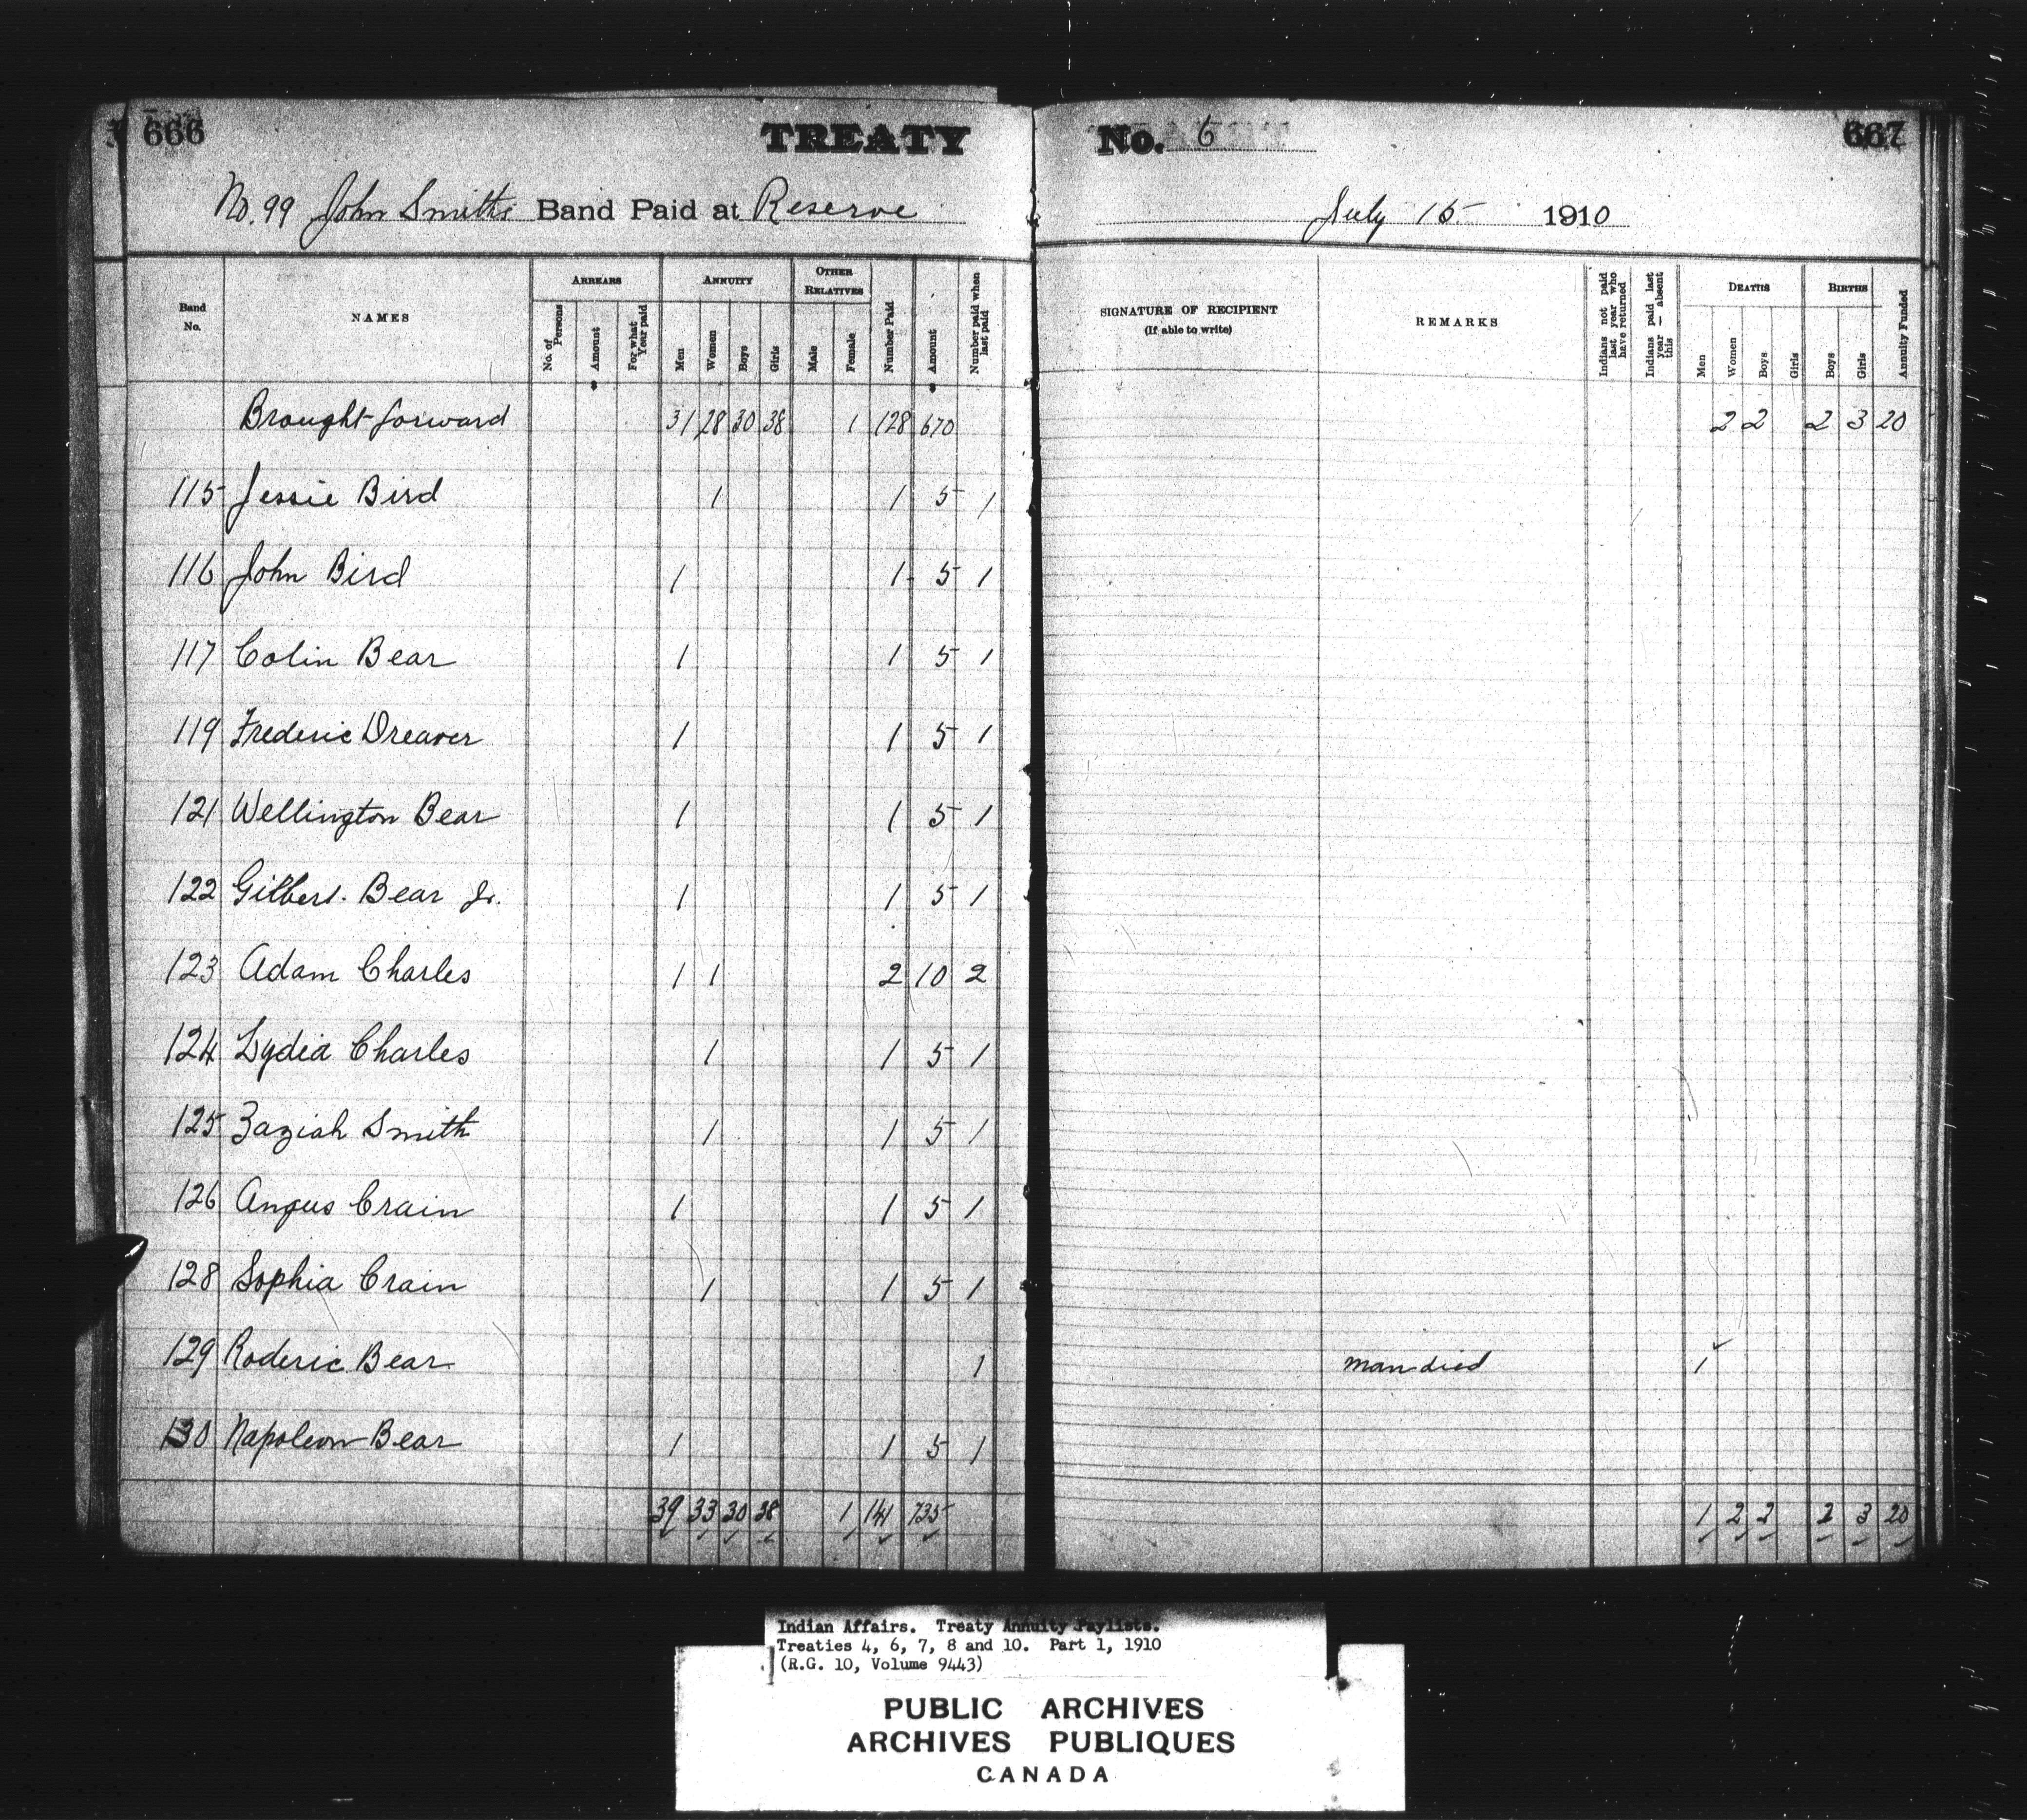 666 TREATY No. 6 667
No. 99 John Smiths Band Paid at Reserve July 15 1910
Band No. NAMES ARREARS ANNUITY OTHER RELATIVES Number Paid Amount Number paid when last paid SIGNATURE OF RECIPIENT (If able to write) REMARKS Indians not paid last year who have returned Indians paid last year — absent this DEATHS BIRTHS Annuity Funded
No. of Persons Amount For what Year paid Men Women Boys Girls Male Female Men Women Boys Girls Boys Girls
Brought forward 31 28 30 38 1 128 670 2 2 2 3 20
115 Jessie Bird 1 1 5 1
116 John Bird 1 1 5 1
117 Colin Bear 1 1 5 1
119 Frederic Dreaver 1 1 5 1
121 Wellington Bear 1 1 5 1
122 Gilbert Bear Jr. 1 1 5 1
123 Adam Charles 1 1 2 10 2
124 Lydia Charles 1 1 5 1
125 Zaziah Smith 1 1 5 1
126 Angus Crain 1 1 5 1
128 Sophia Crain 1 1 5 1
129 Roderic Bear 1 man died 1
130 Napoleon Bear 1 1 5 1
39 33 30 38 1 141 735 1 2 2 2 3 20
Indian Affairs. Treaty Annuity Paylists.
Treaties 4, 6, 7, 8 and 10. Part 1, 1910
(R.G. 10, Volume 9443)
PUBLIC ARCHIVES
ARCHIVES PUBLIQUES
CANADA